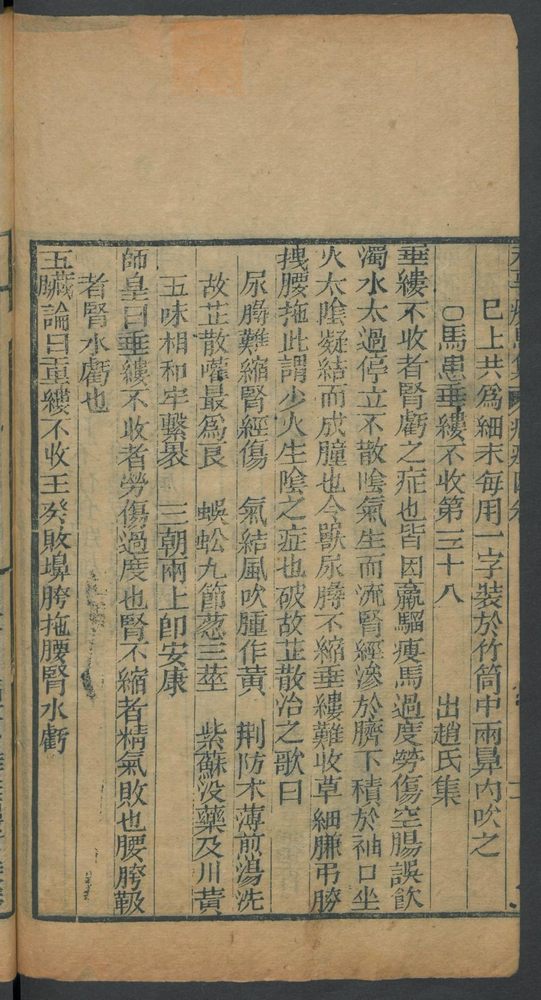 巳上共爲細末每用一字裝於竹筒中兩鼻内吹之
○馬患垂縷不收第三十八 出趙氏集
垂縷不收者腎虧之症也皆因羸驢瘦馬過度勞傷空腸誤飲
濁水太過停立不散陰氣生而流腎經滲於臍下積於袖口坐
火太陰凝結而成腫也令獸尿膊不縮垂縷難收草細膁弔胯
拽腰拖此謂少火生陰之症也破故芷散治之歌曰
尿膊難縮腎經傷 氣結風吹腫作黃 荆防术薄煎湯洗
故芷散嚾最爲良 蜈蚣九節葱三莖 紫蘇没藥及川黃
五味相和牢繫裊 三朝兩上卽安康
師皇曰垂縷不收者勞傷過度也腎不縮者精氣敗也腰胯靸
者腎水虧也
五臟論曰垂縷不收王癸敗塌胯拖腰腎水虧